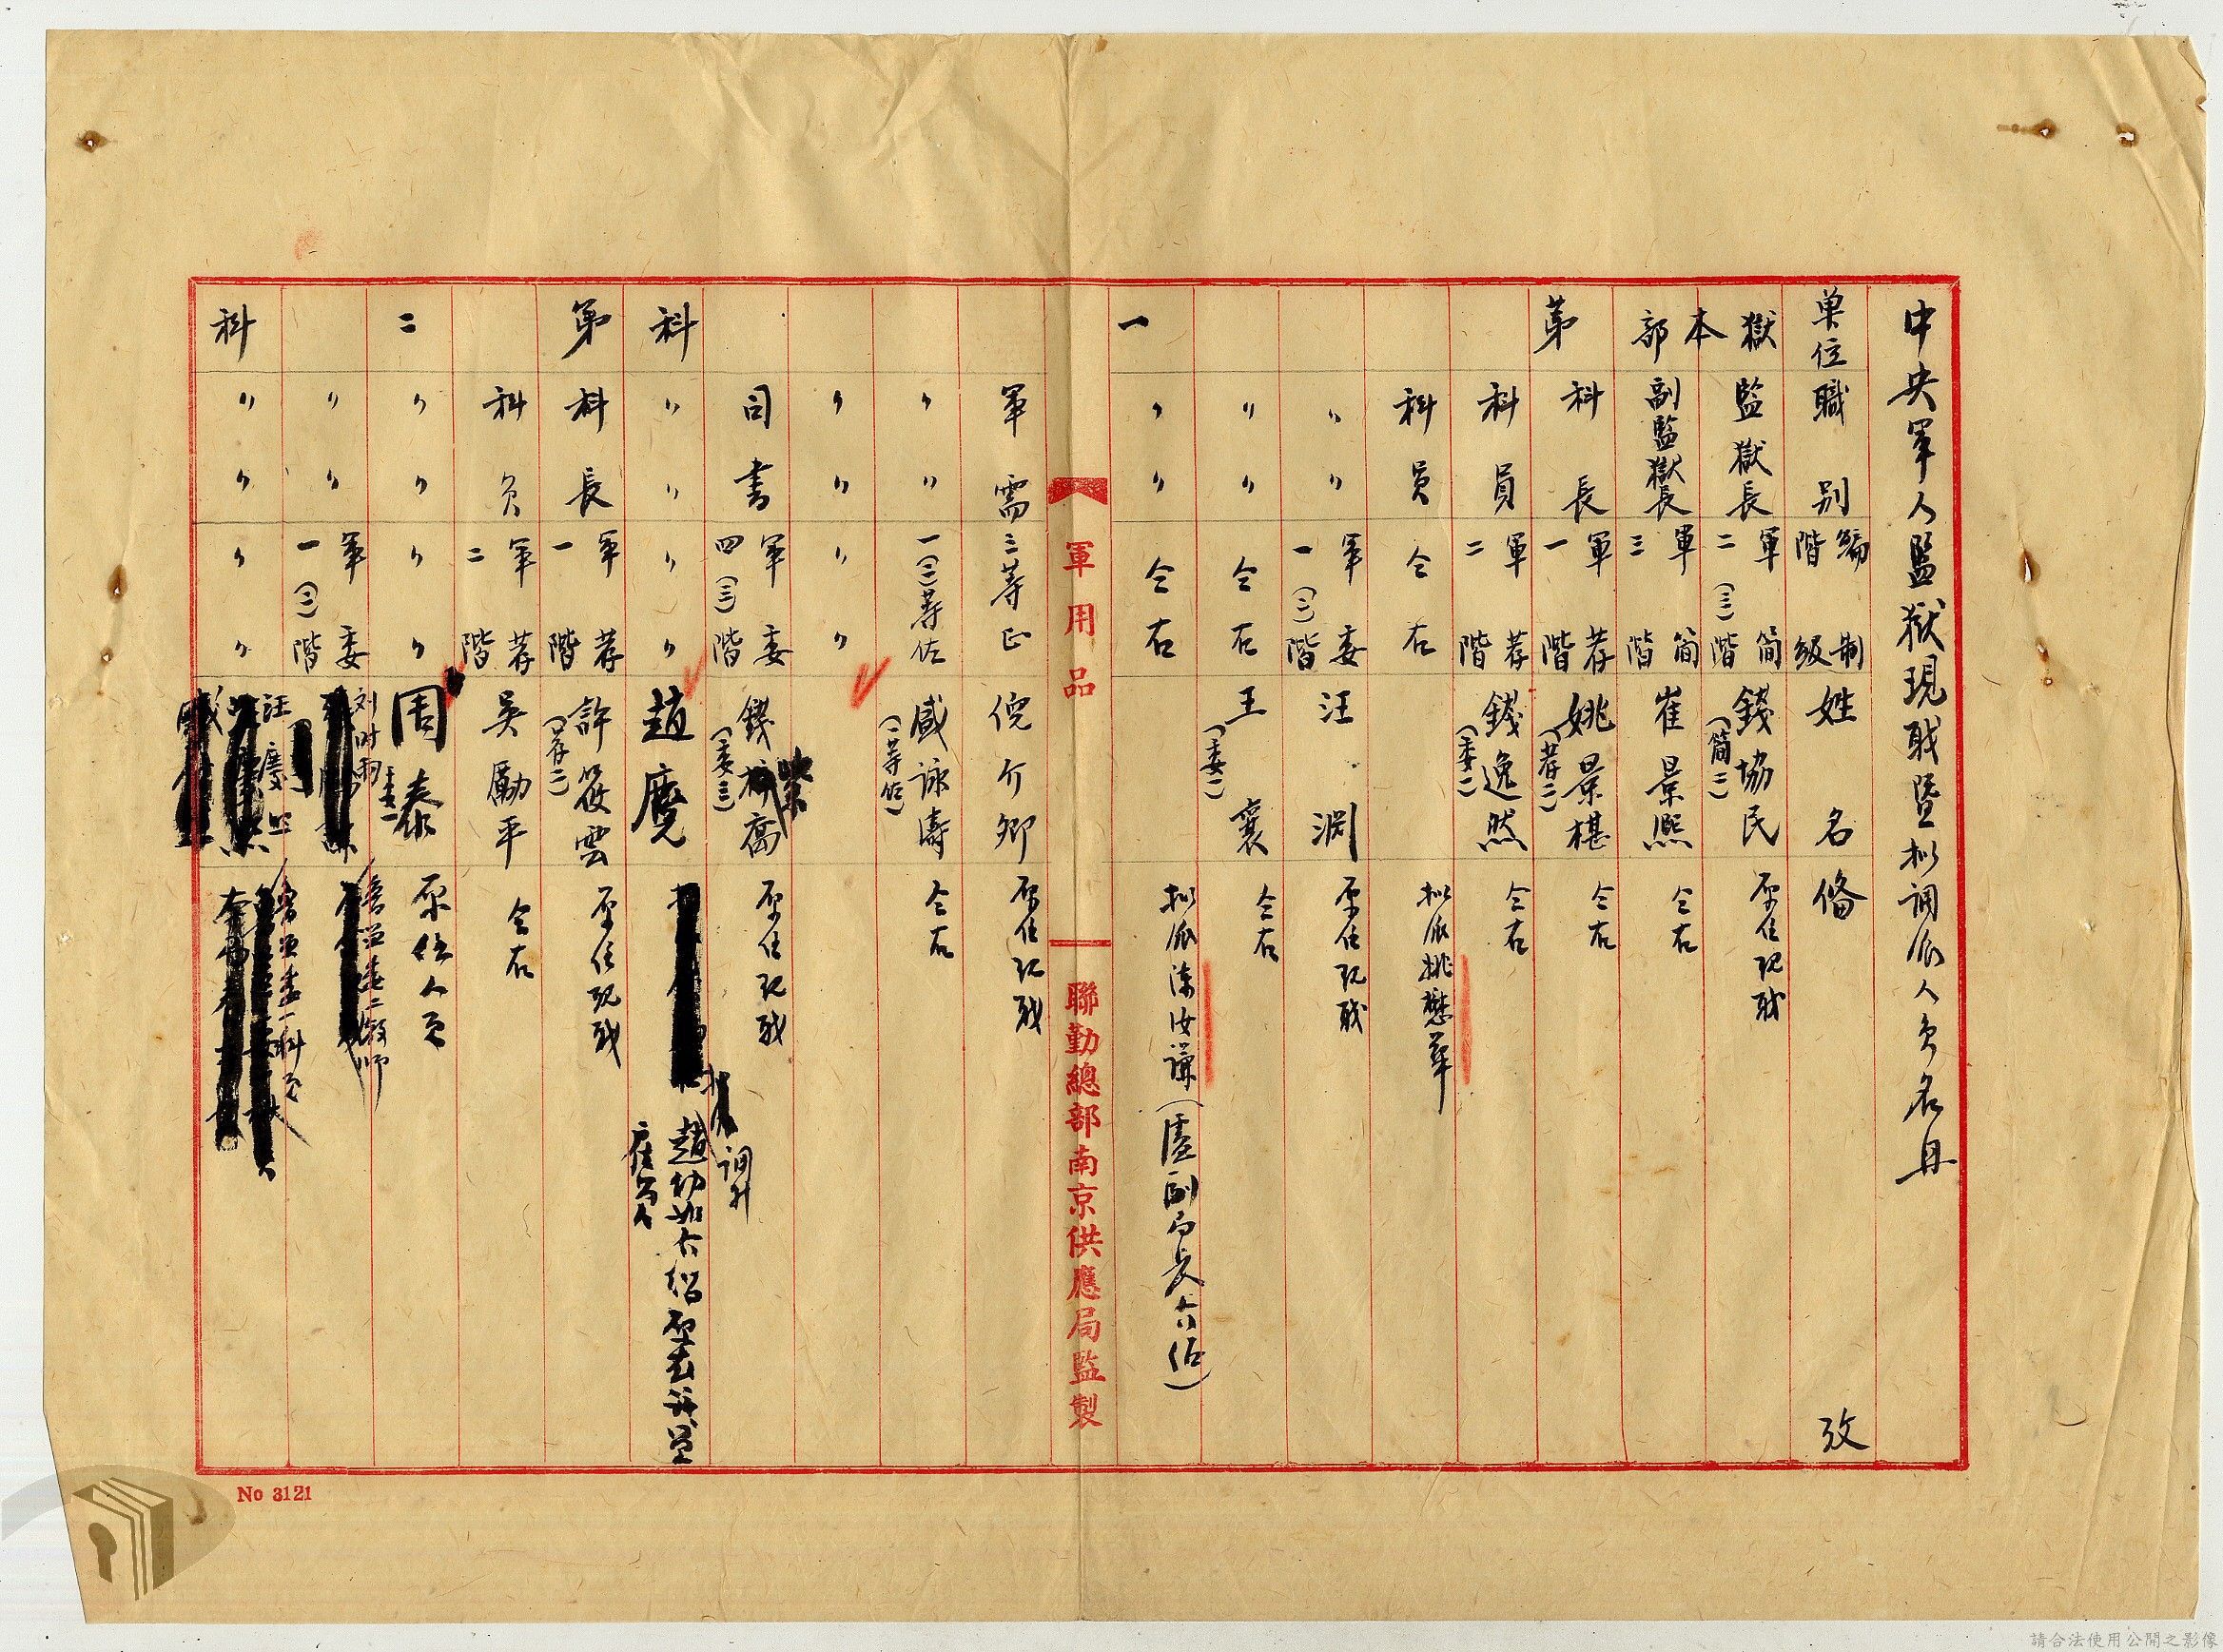 中央軍人監獄現職暨拟調派人員名冊
单位 職別 編制階級 姓名 備攷
獄本部 監獄長 軍簡二(三)階 錢協民(簡三) 原任現职
副監獄長 軍簡三階 崔景熙 仝右
第 科長 軍荐一階 姚景椹(荐二) 仝右
科員 軍荐二階 錢逸然(委一) 仝右
科員 仝右 拟派姚懋華
〃〃 軍委一(二)階 汪淵 原任現职
〃〃 仝右 王襄(委二) 仝右
一 〃〃 仝右 拟派陳汝謙(盧副局長介绍)
軍用品 聯勤總部南京供應局監製
軍需 三等正 倪介卿 原任現职
〃〃 一(二)等佐 戚詠濤(二等佐) 仝右
〃〃 〃〃
司書 軍委四(三)階 錢 喬(委三) 原任現职
科 〃〃 〃〃 趙魔 調升
第 科長 軍荐一階 許筱雲(荐二) 原任現职
科員 軍荐二階 吳勵平 仝右
二 〃〃 〃〃 周泰 原任人員
〃〃 軍委一(二)階 刘时雨
科 〃〃 〃〃 汪
No 3121
請合法使用公開之影像